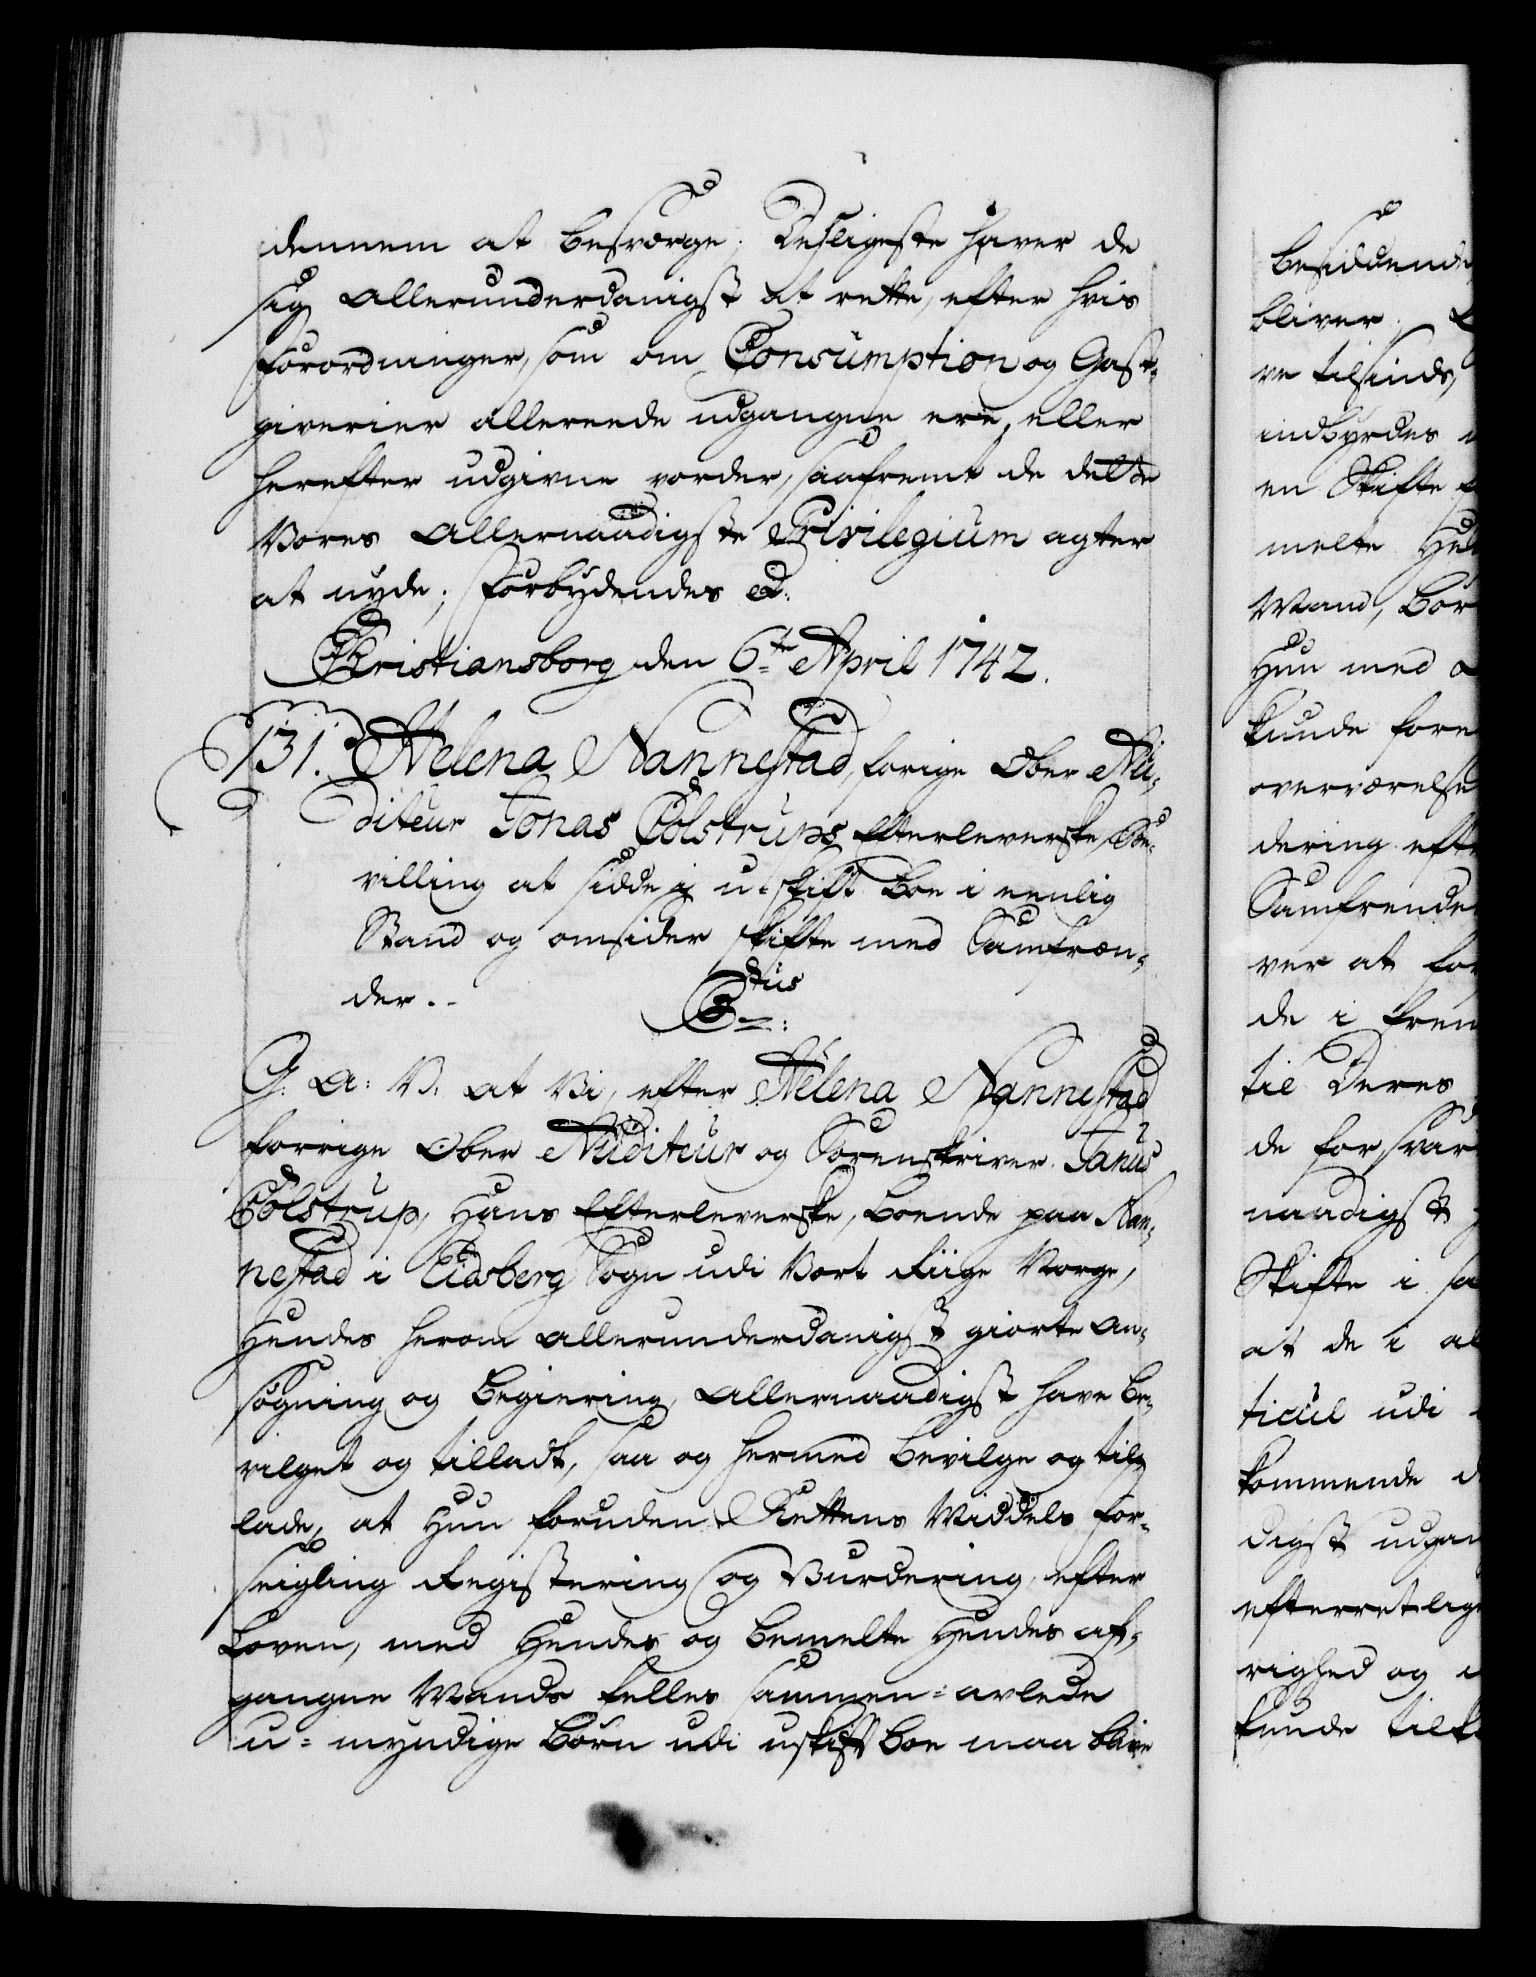 dennem at besvorge; Desligeste haver de
sig allerunderdanigst at rette, efter hvis
forordninger, som om Consumption og Gast-
giverier allereede udgangne ere, eller
herefter udgivne vorder, saafremt de dette
Vores Allernaadigste Privilegium agter
at nyde; forbydendes &.
Christiansborg den 6te April 1742.
131. Helena Nannestad, forige Ober Au-
diteur Jonas Colstrups Efterleverske, Be-
villing at sidde i u-skift Boe i eenlig
Stand og omsider skifte med Samfræn-
der..
C 6tus
G. A: V. at Vi, efter Helena Nannestad
forrige Ober Auditeur og Sorenskriver Janus
Colstrup, Hans Efterleverske, boende paa Nan-
nestad i Eidsberg Sogn udi Vort Riige Norge,
Hendes herom allerunderdanigst giorte An-
søgning og Begiering, Allernaadigst have be-
vilget og tilladt, saa og hermed bevilge og til-
lade, at Hun foruden Rettens Middels For-
seigling Registering og Vurdering, efter
Loven, med Hendes og bemelte Hendes af-
gangne Mands felles sammen-avlede
u-myndige Børn udi uskift Boe maa blive
besiddende
bliver.
ve tilsinds,
indbyrdes
en Skifte
melte Hen
Mand, Bör
Hun med
kunde fore
overværelse
dering eft
Samfrende
ver at for
de i frem
til Deres
de forsvar
naadigst
Skifte i sa
at de i al
ticul udi
kommende d
digst udgan
efterretlige
righed og
kunde tilk